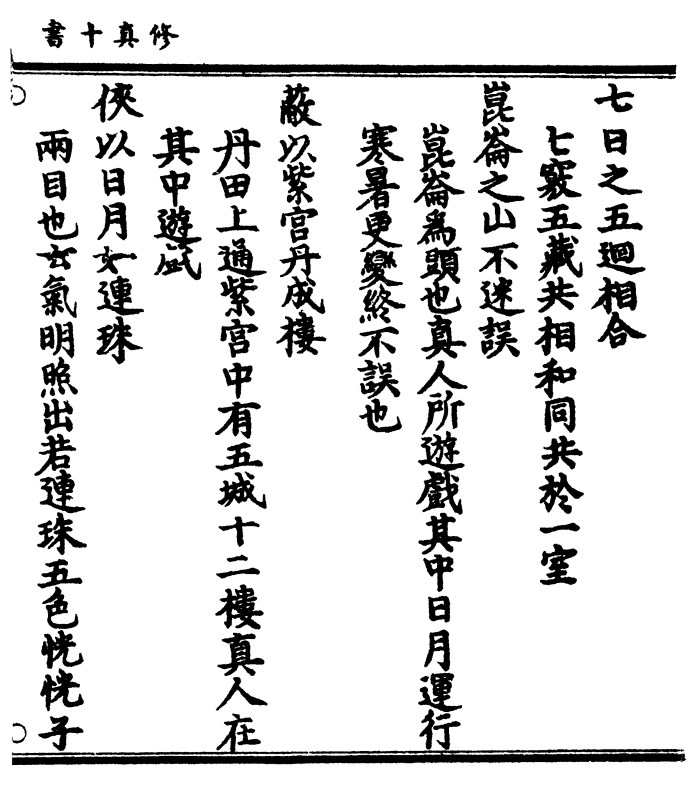 修真十書
七日之五迴相合
七竅五藏共相和同共於一室
崑崙之山不迷誤
崑崙為頭也真人所遊戲其中日月運行
寒暑更變終不誤也
蔽以紫宮丹成樓
丹田上通紫宮中有五城十二樓真人在
其中遊戲
俠以日月如連珠
兩目也玄氣明照出若連珠五色恍恍子